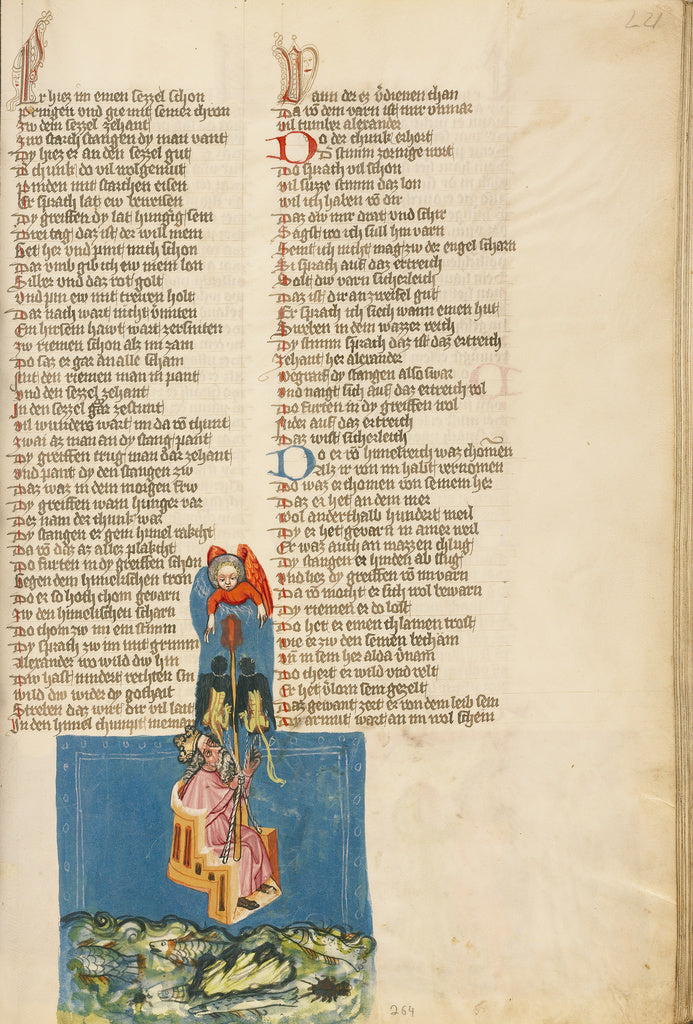 Er hiez im einen sezzel schon
Pringen vnd gie mit seiner chron
Zw dem sezzel zehant
Zwo starch stangen dy man vant
Dy hiez er an den sezzel gut
D chunk do vil wolgemut
Pinden mit starchen eisen
Er sprach lat ew beweisen
Dy greiffen dy lat hungig sein
Drei tag daz ist der will mein
Get her vnd pint mich schon
Dar vmb gib ich ew mein lon
Silber vnd daz rot golt
Vnd pin ew mit trewen holt
Dar nach wart nicht vmiten
Ein hirsein hawt wart zersniten
Zw riemen schon als im zam
Do saz er gar an alle scham
Mit den riemen man in pant
Vnd den sezzel zehant
In den sezzel gar zestunt
Vil wunders wart im da vo chunt
Zwai az man an dy stang pant
Dy greiffen trug man dar zehant
Vnd pant dy den stangen zw
Daz waz in dem morgen frw
Dy greiffen warn hunger var
Der nam der chunk war
Dy stangen er gein himel rakcht
Da vo diz az allez plakcht
Do furten in dy greiffen schon
Gegen dem himelischen tron
Do er so hoch chom gevarn
Zw den himelischen scharn
Do chom zw im ein stimm
Dy sprach zw im mit grimm
Alexander wo wild dw hin
Dw hast nindert rechten sin
Wild dw wider dy gothait
Streben daz wirt dir vil lait
In den himel chumpt nieman
Wann der ez v̄dienen chan
Da vō dem varn ist mir vnmar
Vil tumber alexander
Do der chunk erhort
D stimm zornige wort
Do sprach vil schon
Vil suzze stimm daz lon
Wil ich haben vō dir
Daz dw mir drat vnd schir
Sagst wo ich sull hin varn
Seint ich nicht mag zw der engel scharn
Si sprach auf daz ertreich
Solt dw varn sicherleich
Daz ist dir an zweifel gut
Er sprach ich siech wann einen hut
Sweben in dem wazzer reich
Dy stimm sprach daz ist daz ertreich
Zehant her alexander
Wegraif dy stangen also swar
Vnd naigt sich auf daz ertreich wol
Do furten in dy greiffen wol
Nider auf daz ertreich
Daz wist sicherleich
Do er vō himelreich waz chomen
Alz ir von im habt vernomen
Do waz er chomen von seinem her
Daz er het an dem mer
Wol anderthalb hundert meil
Dy er het gevarn in ainer weil
Er waz auch an mazzen chlug
Dy stangen er hinden ab slug
Vnd liez dy greiffen vō im varn
Da vō mocht er sich wol bewarn
Dy riemen er do lost
Do het er einen chlainen trost
Wie er zw den seinen becham
Vn̄ in sein her alda v̄nam
Do chert er wild vnd velt
Er het v̄lorn sein gezelt
Daz gewant zert er von dem leib sein
Dy armut wart an im wol schein
264